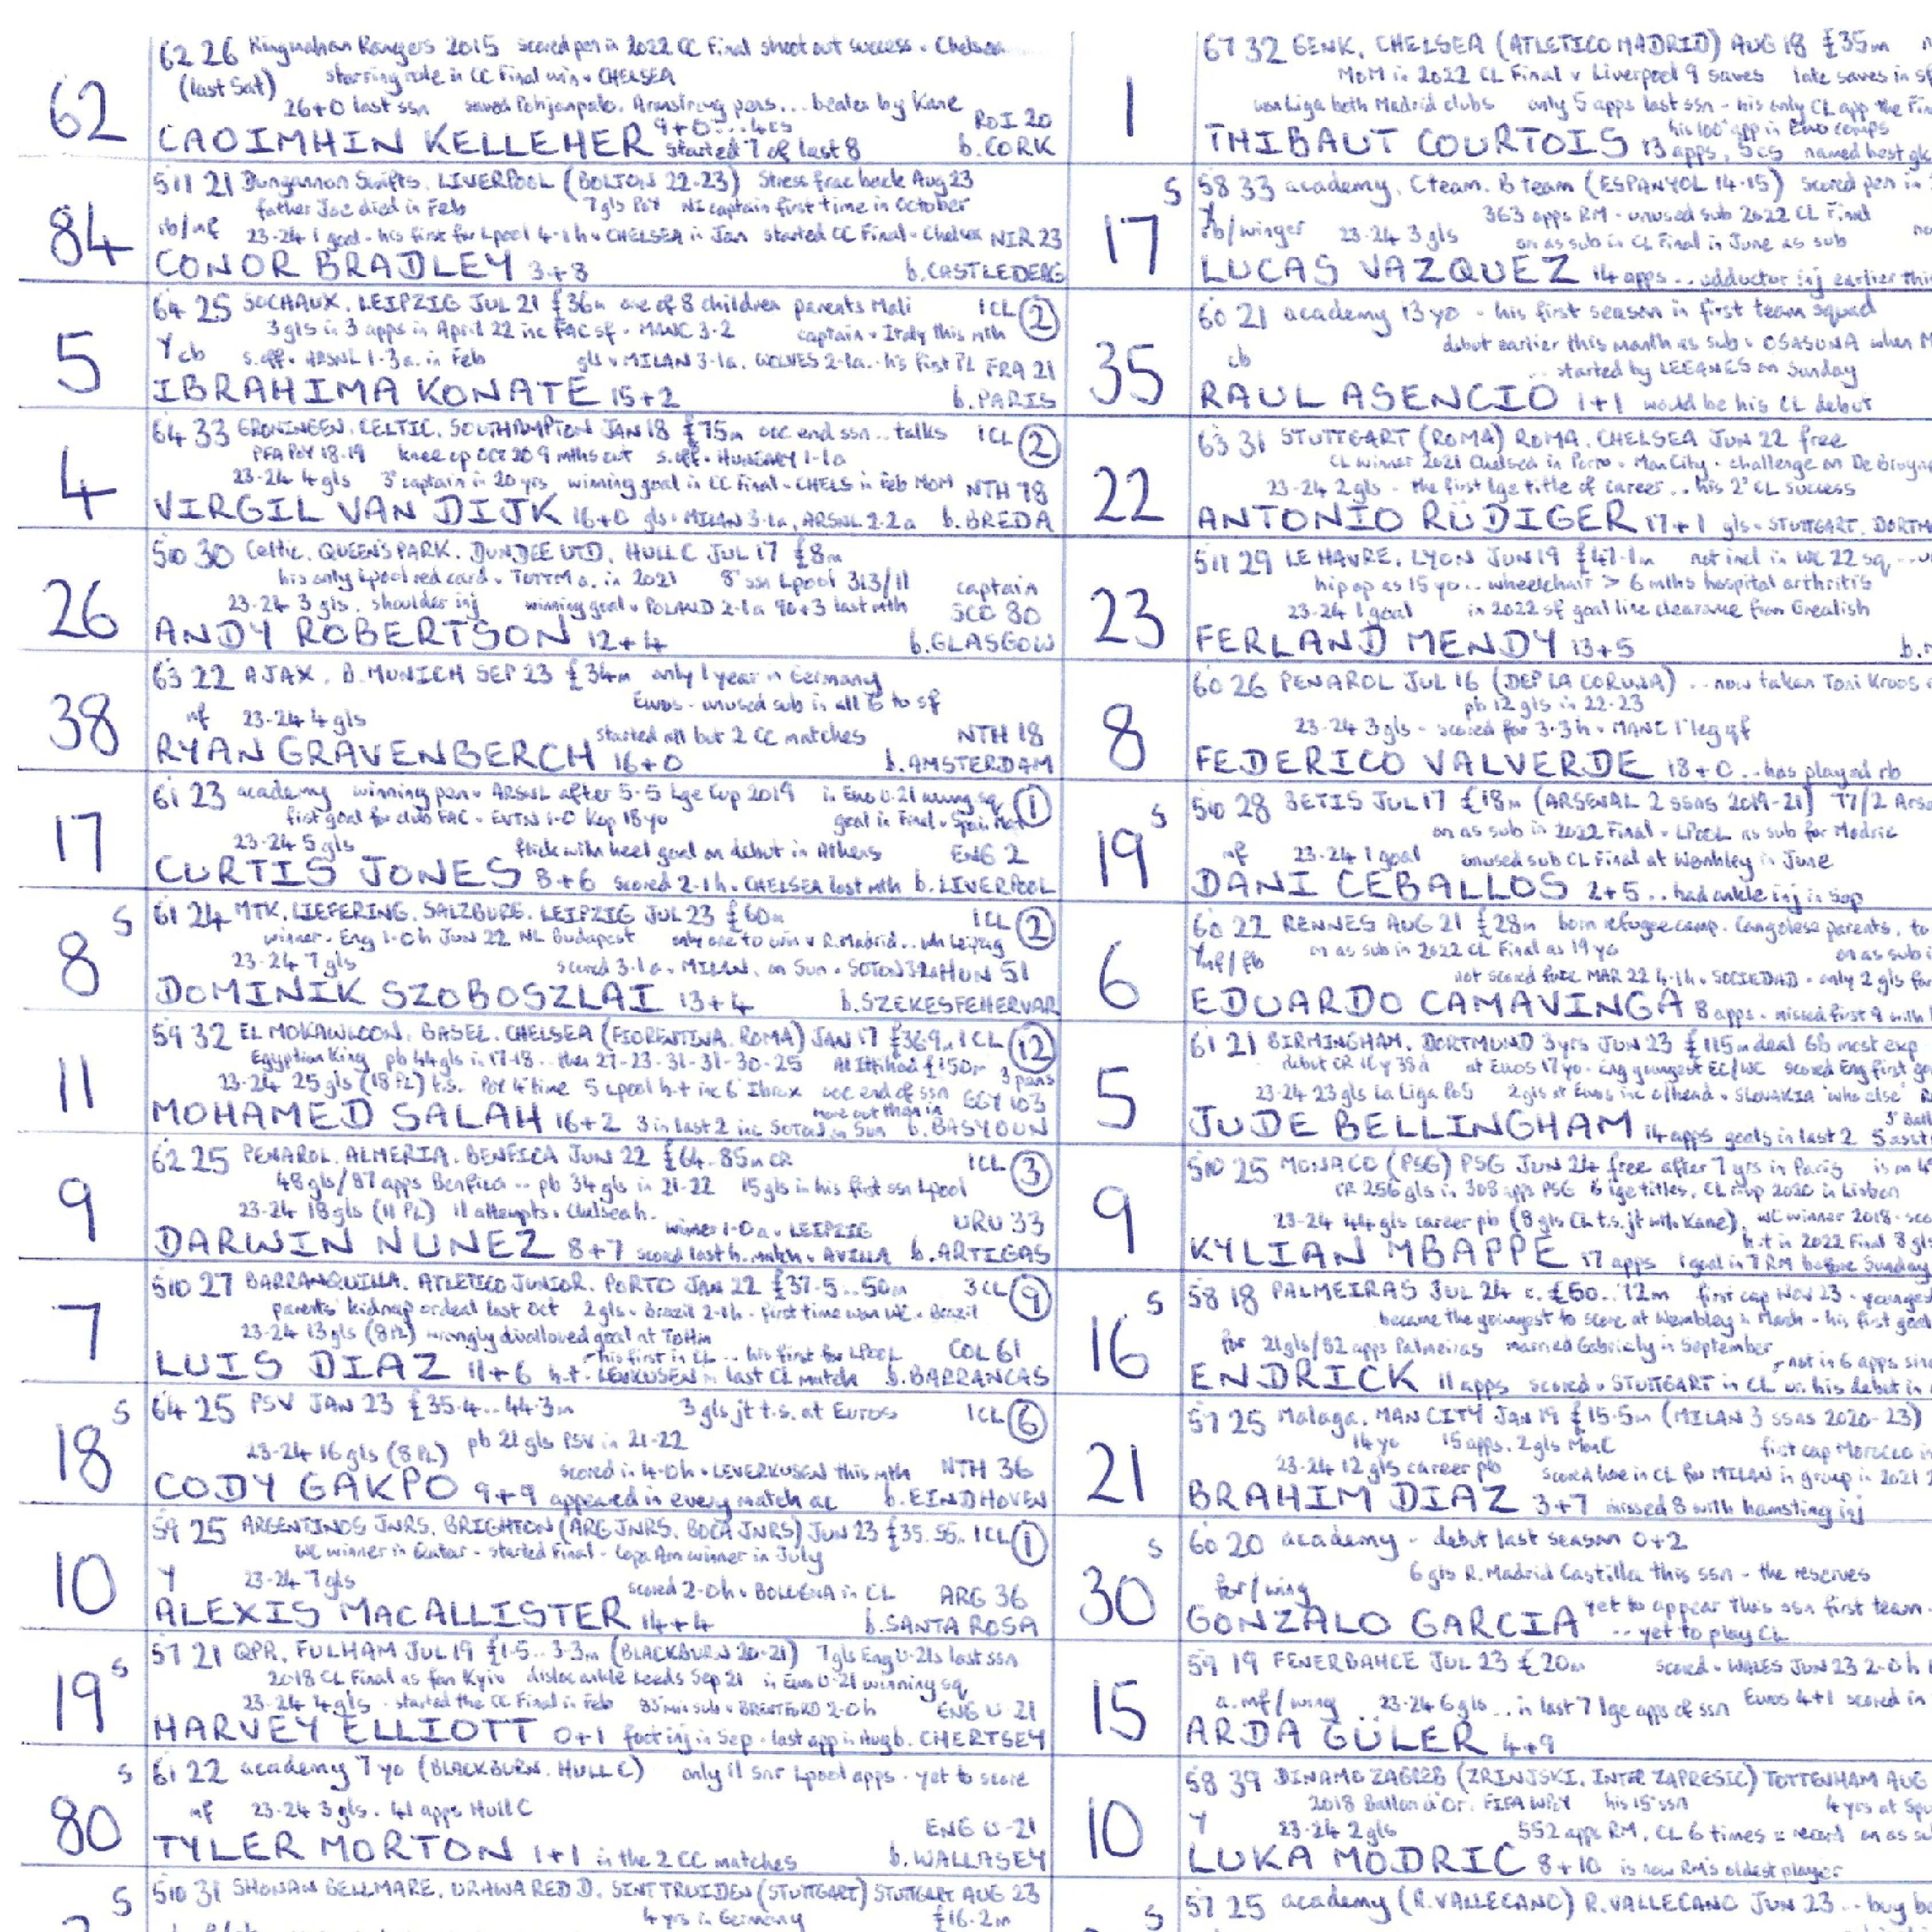 62
62 26 Ringmahon Rangers 2015 scored pen in 2022 CC Final shoot out success v Chelsea
(last Sat) starring role in CC Final win v CHELSEA
26+0 last ssn saved Pohjanpalo, Armstrong pens... beaten by Kane
9+0... 4cs ROI 20
CAOIMHIN KELLEHER started 7 of last 8 b. CORK
84
511 21 Dungannon Swifts. LIVERPOOL (BOLTON 22-23) Stress frac back Aug 23
father Joe died in Feb 7gls PoY NI captain first time in October
rb/mf 23-24 1 goal - his first for Lpool 4-1h v CHELSEA in Jan started CC Final v Chelsea NIR 23
CONOR BRADLEY 3+8 b. CASTLEDERG
5
64 25 SOCHAUX. LEIPZIG JUL 21 £36m one of 8 children parents Mali 1CL (2)
3 gls in 3 apps in April 22 inc FAC sf v MANC 3-2 captain v Italy this mth
Y cb s.off v ARSNL 1-3 a. in Feb gls v MILAN 3-1a. WOLVES 2-1a.. his first PL FRA 21
IBRAHIMA KONATE 15+2 b. PARIS
4
64 33 GRONINGEN. CELTIC. SOUTHAMPTON JAN 18 £75m ooc end ssn.. talks 1CL (2)
PFA PoY 18-19 knee op OCT 20 9 mths out s.off v HUNGARY 1-1a
23-24 4 gls 3° captain in 20 yrs winning goal in CC Final v CHELS in Feb MOM NTH 78
VIRGIL VAN DIJK 16+0 gls v MILAN 3-1a, ARSNL 2-2 a b. BREDA
26
510 30 Celtic. QUEENS PARK. DUNDEE UTD. HULL C JUL 17 £8m
his only Lpool red card v TOTTM a. in 2021 8° ssn Lpool 313/11 captain
23-24 3 gls. shoulder inj winning goal v POLAND 2-1a 90+3 last mth SCO 80
ANDY ROBERTSON 12+4 b. GLASGOW
38
63 22 AJAX. B. MUNICH SEP 23 £34m only 1 year in Germany
Euros - unused sub in all 6 to sf
mf 23-24 4 gls
started all but 2 CC matches NTH 18
RYAN GRAVENBERCH 16+0 b. AMSTERDAM
17
61 23 academy winning pen v ARSNL after 5-5 Lge Cup 2019 in Euro U-21 winning sq (1)
first goal for club FAC v EVTN 1-0 Kop 18 yo goal in Final v Spain
23-24 5 gls flick with heel goal on debut in Athens ENG 2
CURTIS JONES 8+6 scored 2-1h v CHELSEA last mth b. LIVERPOOL
8 S
61 24 MTK. LIEFERING. SALZBURG. LEIPZIG JUL 23 £60m 1CL (2)
winner v Eng 1-0h Jun 22 NL Budapest only one to win v R.Madrid.. wh Leipzig
23-24 7 gls scored 3-1a v MILAN, on Sun v SOTON 3-2a HUN 51
DOMINIK SZOBOSZLAI 13+4 b. SZEKESFEHERVAR
11
59 32 EL MOKAWLOON. BASEL. CHELSEA (FIORENTINA. ROMA) JAN 17 £36.9m 1CL (12)
Egyptian King pb 44 gls in 17-18.. then 27-23-31-31-30-25 Al Ittihad £150m 3 pens
23-24 25 gls (18 PL) t.s. PoY 4° time 5 Lpool h-t inc 6' Ibrox ooc end of ssn EGY 103
more out than in
MOHAMED SALAH 16+2 3 in last 2 inc SOTON on Sun b. BASYOUN
9
62 25 PENAROL. ALMERIA. BENFICA JUN 22 £64..85m CR 1CL (3)
48 gls/87 apps Benfica.. pb 34 gls in 21-22 15 gls in his first ssn Lpool
23-24 18 gls (11 PL) 11 attempts v Chelsea h.
winner 1-0 a v LEIPZIG URU 33
DARWIN NUNEZ 8+7 scored last h. match v AVILLA b. ARTIGAS
7
510 27 BARRANQUILLA. ATLETICO JUNIOR. PORTO JAN 22 £37.5..50m 3CL (9)
parents' kidnap ordeal last Oct 2 gls v Brazil 2-1h - first time won WC v Brazil
23-24 13 gls (8 PL) wrongly disallowed goal at Tottm
his first in CL.. his first for LPOOL COL 61
LUIS DIAZ 11+6 h.t. v LEVKUSEN in last CL match b. BARRANCAS
18 S
64 25 PSV JAN 23 £35.4..44.3m 3 gls jt t.s. at Euros 1CL (6)
23-24 16 gls (8 PL) pb 21 gls PSV in 21-22
scored in 4-0h v LEVERKUSEN this mth NTH 36
CODY GAKPO 9+9 appeared in every match ac b. EINDHOVEN
10
59 25 ARGENTINOS JNRS. BRIGHTON (ARG JNRS. BOCA JNRS) JUN 23 £35.55.. 1CL (1)
WC winner in Qatar - started Final - Copa Am winner in July
Y 23-24 7 gls scored 2-0h v BOLOGNA in CL ARG 36
ALEXIS MACALLISTER 14+4 b. SANTA ROSA
19 S
57 21 QPR. FULHAM JUL 19 £1.5...3.3m (BLACKBURN 20-21) 7 gls Eng U-21s last ssn
2018 CL Final as fan Kyiv disloc ankle Leeds Sep 21 in Euro U-21 winning sq
23-24 4 gls - started the CC Final in Feb 85 min sub v BRENTFORD 2-0h ENG U 21
HARVEY ELLIOTT 0+1 foot inj in Sep - last app in Aug b. CHERTSEY
80 S
61 22 academy 7 yo (BLACKBURN. HULL C) only 11 snr Lpool apps - yet to score
mf 23-24 3 gls. 41 apps Hull C
ENG U-21
TYLER MORTON 1+1 in the 2 CC matches b. WALLASEY
S
510 31 SHONAN BELLMARE. URAWA RED D. SINT TRUIDEN (STUTTGART) STUTTGART AUG 23
4 yrs in Germany £16.2m
1
67 32 GENK. CHELSEA (ATLETICO MADRID) AUG 18 £35m
MoM in 2022 CL Final v Liverpool 9 saves late saves in
won Liga both Madrid clubs only 5 apps last ssn - his only CL app the
his 100° app in Euro comps
THIBAUT COURTOIS 13 apps, 5cs named best
17 S
58 33 academy. C team. B team (ESPANYOL 14-15) scored pen in
Y 363 apps RM - unused sub 2022 CL Final
rb/winger 23-24 3 gls on as sub in CL Final in June as sub
LUCAS VAZQUEZ 14 apps.. adductor inj earlier
35
60 21 academy 13 yo - his first season in first team squad
debut earlier this month as sub v OSASUNA when
cb started by LEGANES on Sunday
RAUL ASENCIO 1+1 would be his CL debut
22
63 31 STUTTGART (ROMA) ROMA. CHELSEA JUN 22 free
CL winner 2021 Chelsea in Porto v Man City - challenge on De
23-24 2 gls - the first lge title of career.. his 2° CL success
ANTONIO RÜDIGER 17+1 gls v STUTTGART,
23
511 29 LE HAVRE. LYON JUN 19 £47.1m not incl in WC 22 sq
hip op as 15 yo.. wheelchair > 6 mths hospital arthritis
23-24 1 goal in 2022 sf goal line clearance from Grealish
FERLAND MENDY 13+5
8
60 26 PENAROL JUL 16 (DEP LA CORUNA) .. now taken Toni Kroos
pb 12 gls in 22-23
23-24 3 gls - scored for 3-3 h v MANC 1° leg qf
FEDERICO VALVERDE 18+0.. has played rb
19 S
510 28 BETIS JUL 17 £18m (ARSENAL 2 SSNS 2019-21) 77/2
on as sub in 2022 Final v LPOOL as sub for Modric
mf 23-24 1 goal unused sub CL Final at Wembley in June
DANI CEBALLOS 2+5.. had ankle inj in Sep
6
60 22 RENNES AUG 21 £28m born refugee camp. Congolese parents.
Y mf/fb on as sub in 2022 CL Final as 19 yo on as sub
not scored since MAR 22 4-1h v SOCIEDAD - only 2 gls
EDUARDO CAMAVINGA 8 apps - missed first 9 with
5
61 21 BIRMINGHAM. DORTMUND 3 yrs JUN 23 £115m deal GB most exp
debut CR 16y 38d at Euros 17 yo. Eng youngest EC/WC scored Eng first
23-24 23 gls La Liga PoS 2 gls at Euros inc o/head v SLOVAKIA 'who else'
JUDE BELLINGHAM 14 apps goals in last 2 5
9
510 25 MONACO (PSG) PSG JUN 24 free after 7 yrs in Paris
CR 256 gls in 308 apps PSG 6 lge titles. CL r-up 2020 in Lisbon
23-24 44 gls career pb (8 gls CL t.s. jt with Kane). WC winner 2018
h.t in 2022 Final 8 gls
KYLIAN MBAPPE 17 apps 1 goal in 7 RM before Sunday
16 S
58 18 PALMEIRAS JUL 24 £50..12m first cap Nov 23 - youngest
became the youngest to score at Wembley in March - his first
for 21 gls/82 apps Palmeiras married Gabriely in September
not in 6 apps
ENDRICK 11 apps scored v STUTTGART in CL on his debut in
21
57 25 Malaga. MAN CITY JAN 19 £15.5m (MILAN 3 SSNS 2020-23)
14 yo 15 apps. 2 gls ManC first cap Morocco
23-24 12 gls career pb scored here in CL for MILAN in group in 2021
BRAHIM DIAZ 3+7 missed 8 with hamstring inj
30 S
60 20 academy - debut last season 0+2
6 gls R. Madrid Castilla this ssn - the reserves
for/wing
GONZALO GARCIA yet to appear this ssn first team
.. yet to play CL
15
59 19 FENERBAHCE JUL 23 £20m scored v WALES JUN 23 2-0h
a.mf/wing 23-24 6 gls... in last 7 lge apps of ssn Euros 4+1 scored in
ARDA GÜLER 4+9
10
58 39 DINAMO ZAGREB (ZRINJSKI. INTER ZAPRESIC) TOTTENHAM AUG
2018 Ballon d'Or. FIFA WPoY his 15° ssn 4 yrs at
Y 23-24 2 gls 552 apps RM. CL 6 times = record on as
LUKA MODRIC 8+10 is now RM's oldest player
S
57 25 academy (R. VALLECANO) R. VALLECANO JUN 23.. buy